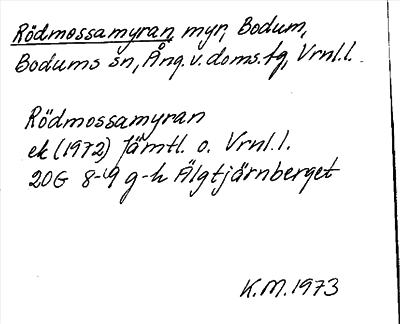 Rödmossamyran, myr, Bodum,
Bodums sn, Ång. v. doms.fg, Vrnl.l.
Rödmossamyran
ek (1972) Jämtl. o. Vrnl.l.
20G 8-9 g-h Älgtjärnberget
K.M. 1973